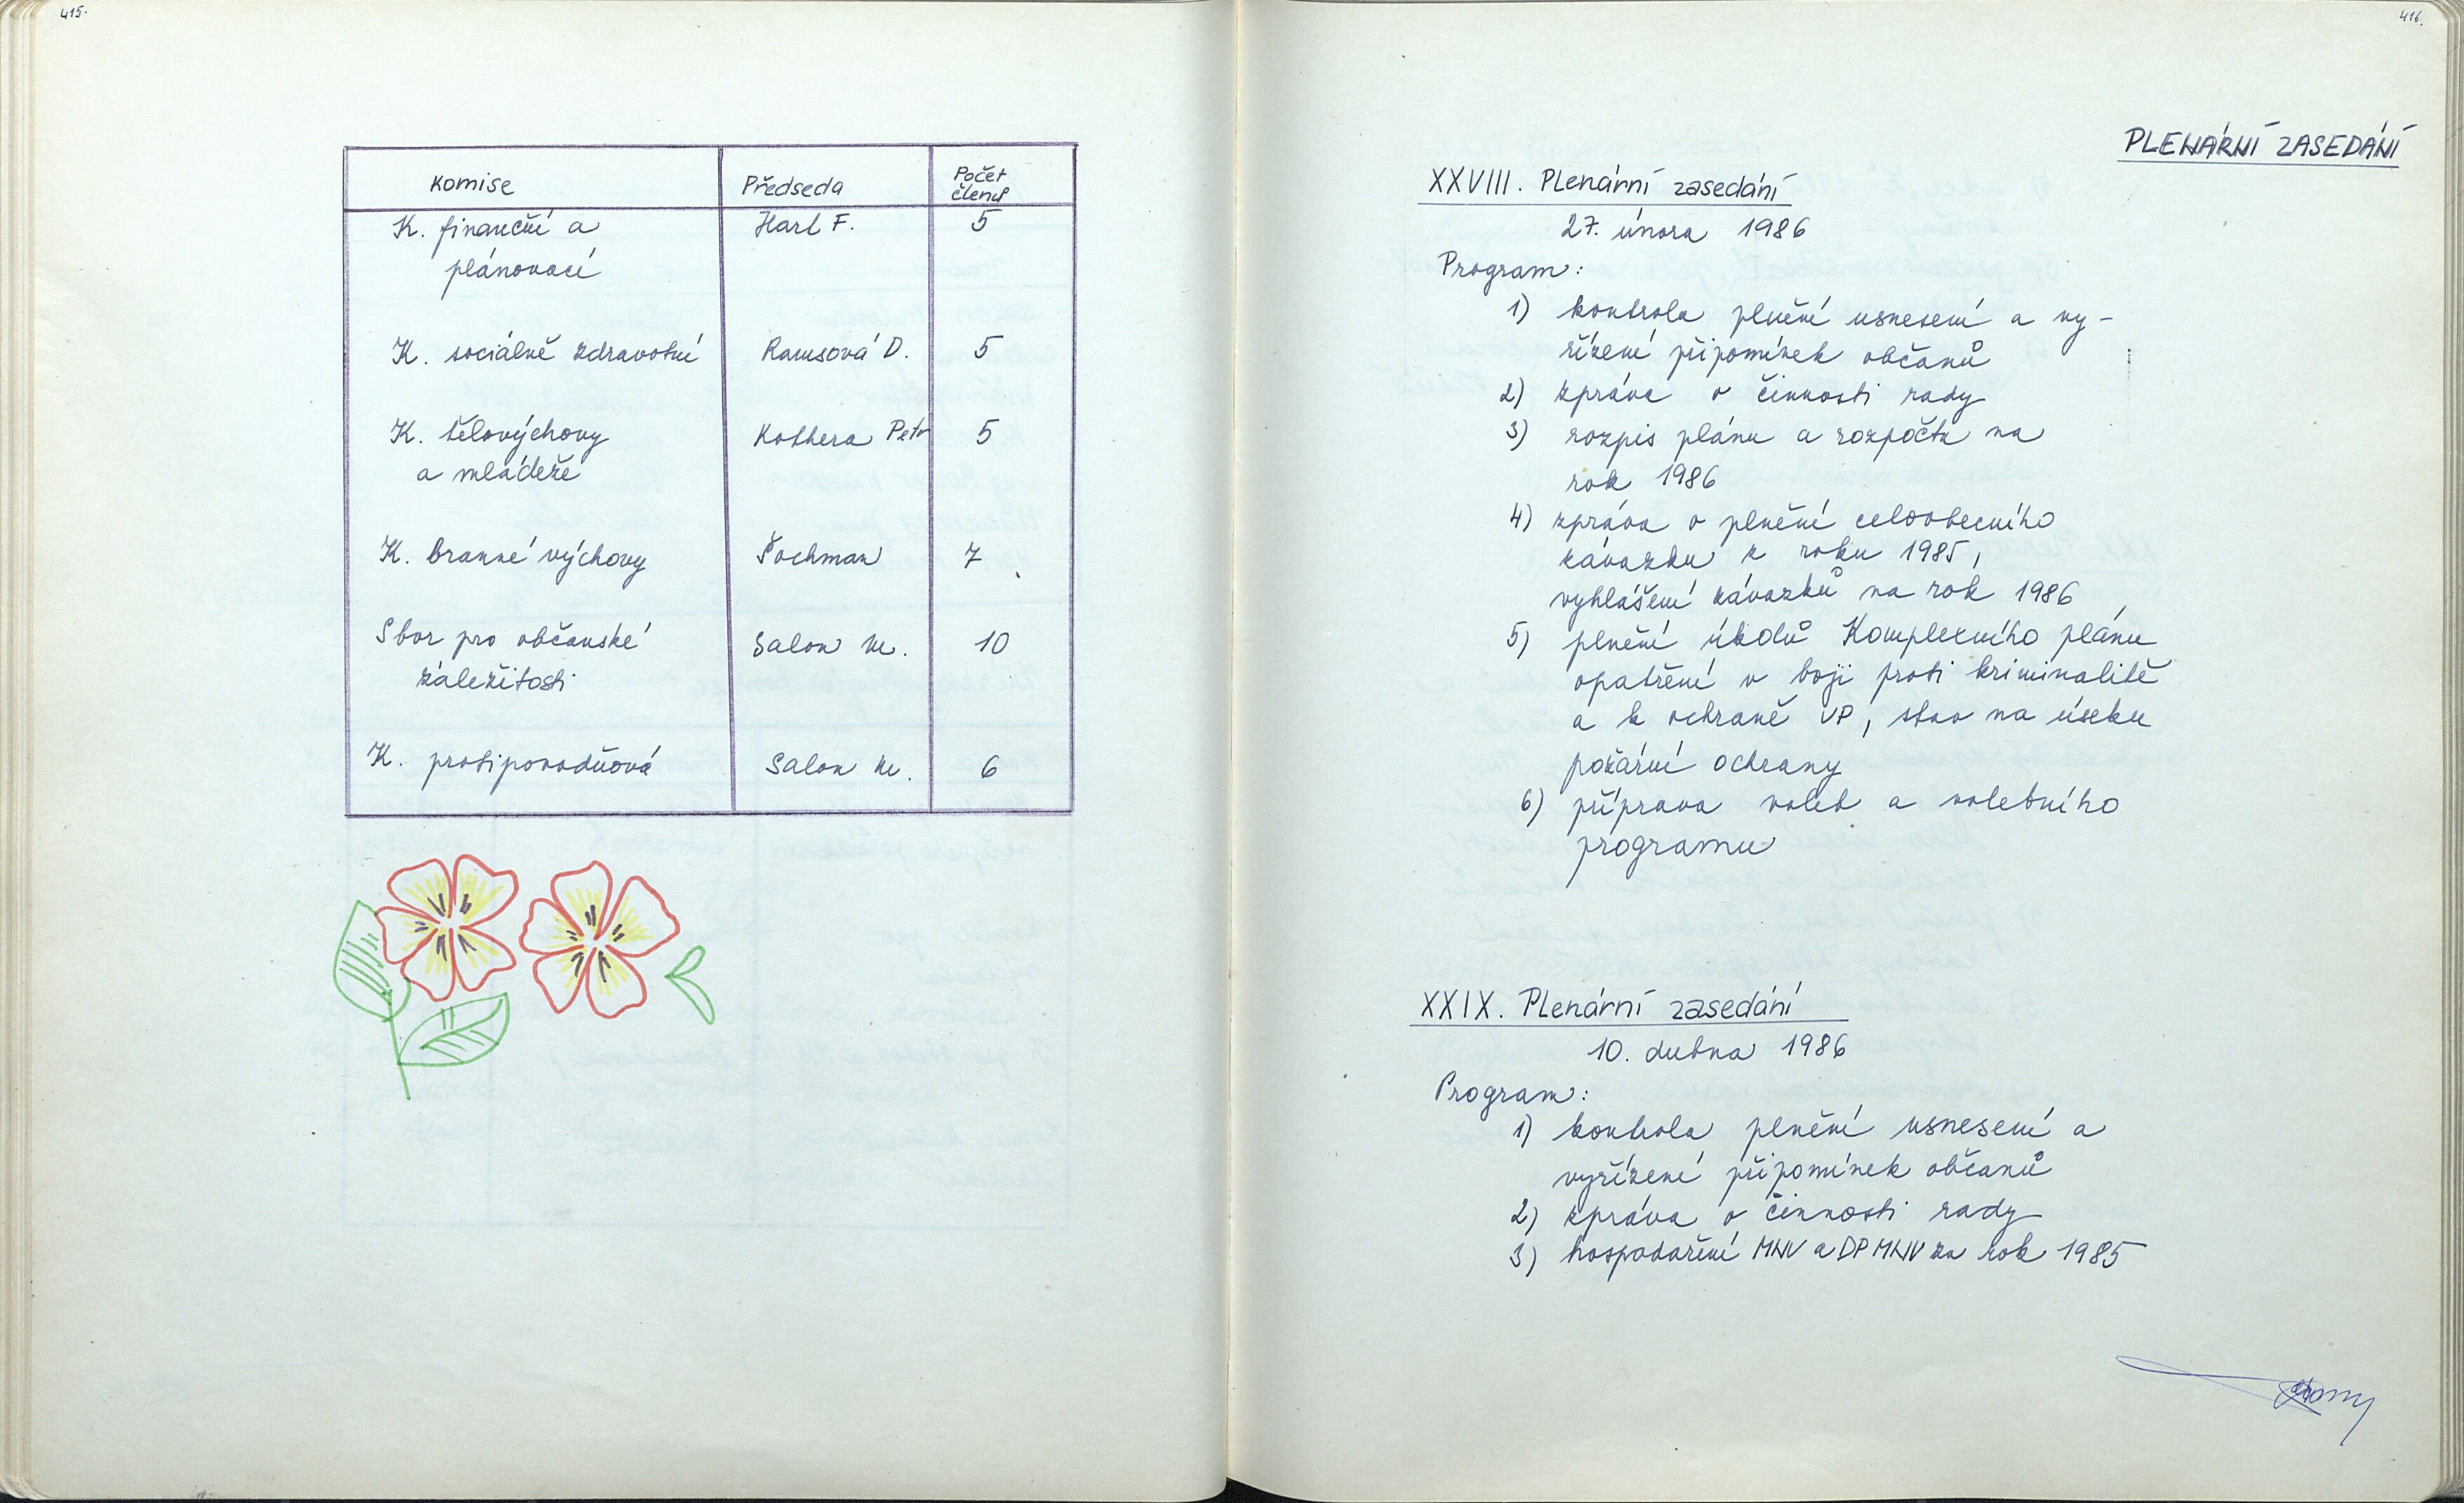 415.
Komise Předseda Počet
členů
K. finanční a Harl F. 5
plánovací
K. sociálně zdravotní Ramsová D. 5
K. tělovýchovy Kothera Petr 5
a mládeže
K. branné výchovy Šochman 7
Sbor pro občanské Salon M. 10
záležitosti
K. protipovodňová Salon M. 6
416.
PLENÁRNÍ ZASEDÁNÍ
XXVIII. Plenární zasedání
27. února 1986
Program:
1) kontrola plnění usnesení a vy-
řízení připomínek občanů
2) zpráva o činnosti rady
3) rozpis plánu a rozpočtu na
rok 1986
4) zpráva o plnění celoobecního
závazku z roku 1985,
vyhlášení závazků na rok 1986
5) plnění úkolů Komplexního plánu
opatření v boji proti kriminalitě
a k ochraně VP, stav na úseku
požární ochrany
6) příprava voleb a volebního
programu
XXIX. Plenární zasedání
10. dubna 1986
Program:
1) kontrola plnění usnesení a
vyřízení připomínek občanů
2) zpráva o činnosti rady
3) hospodaření MNV a DP MNV za rok 1985